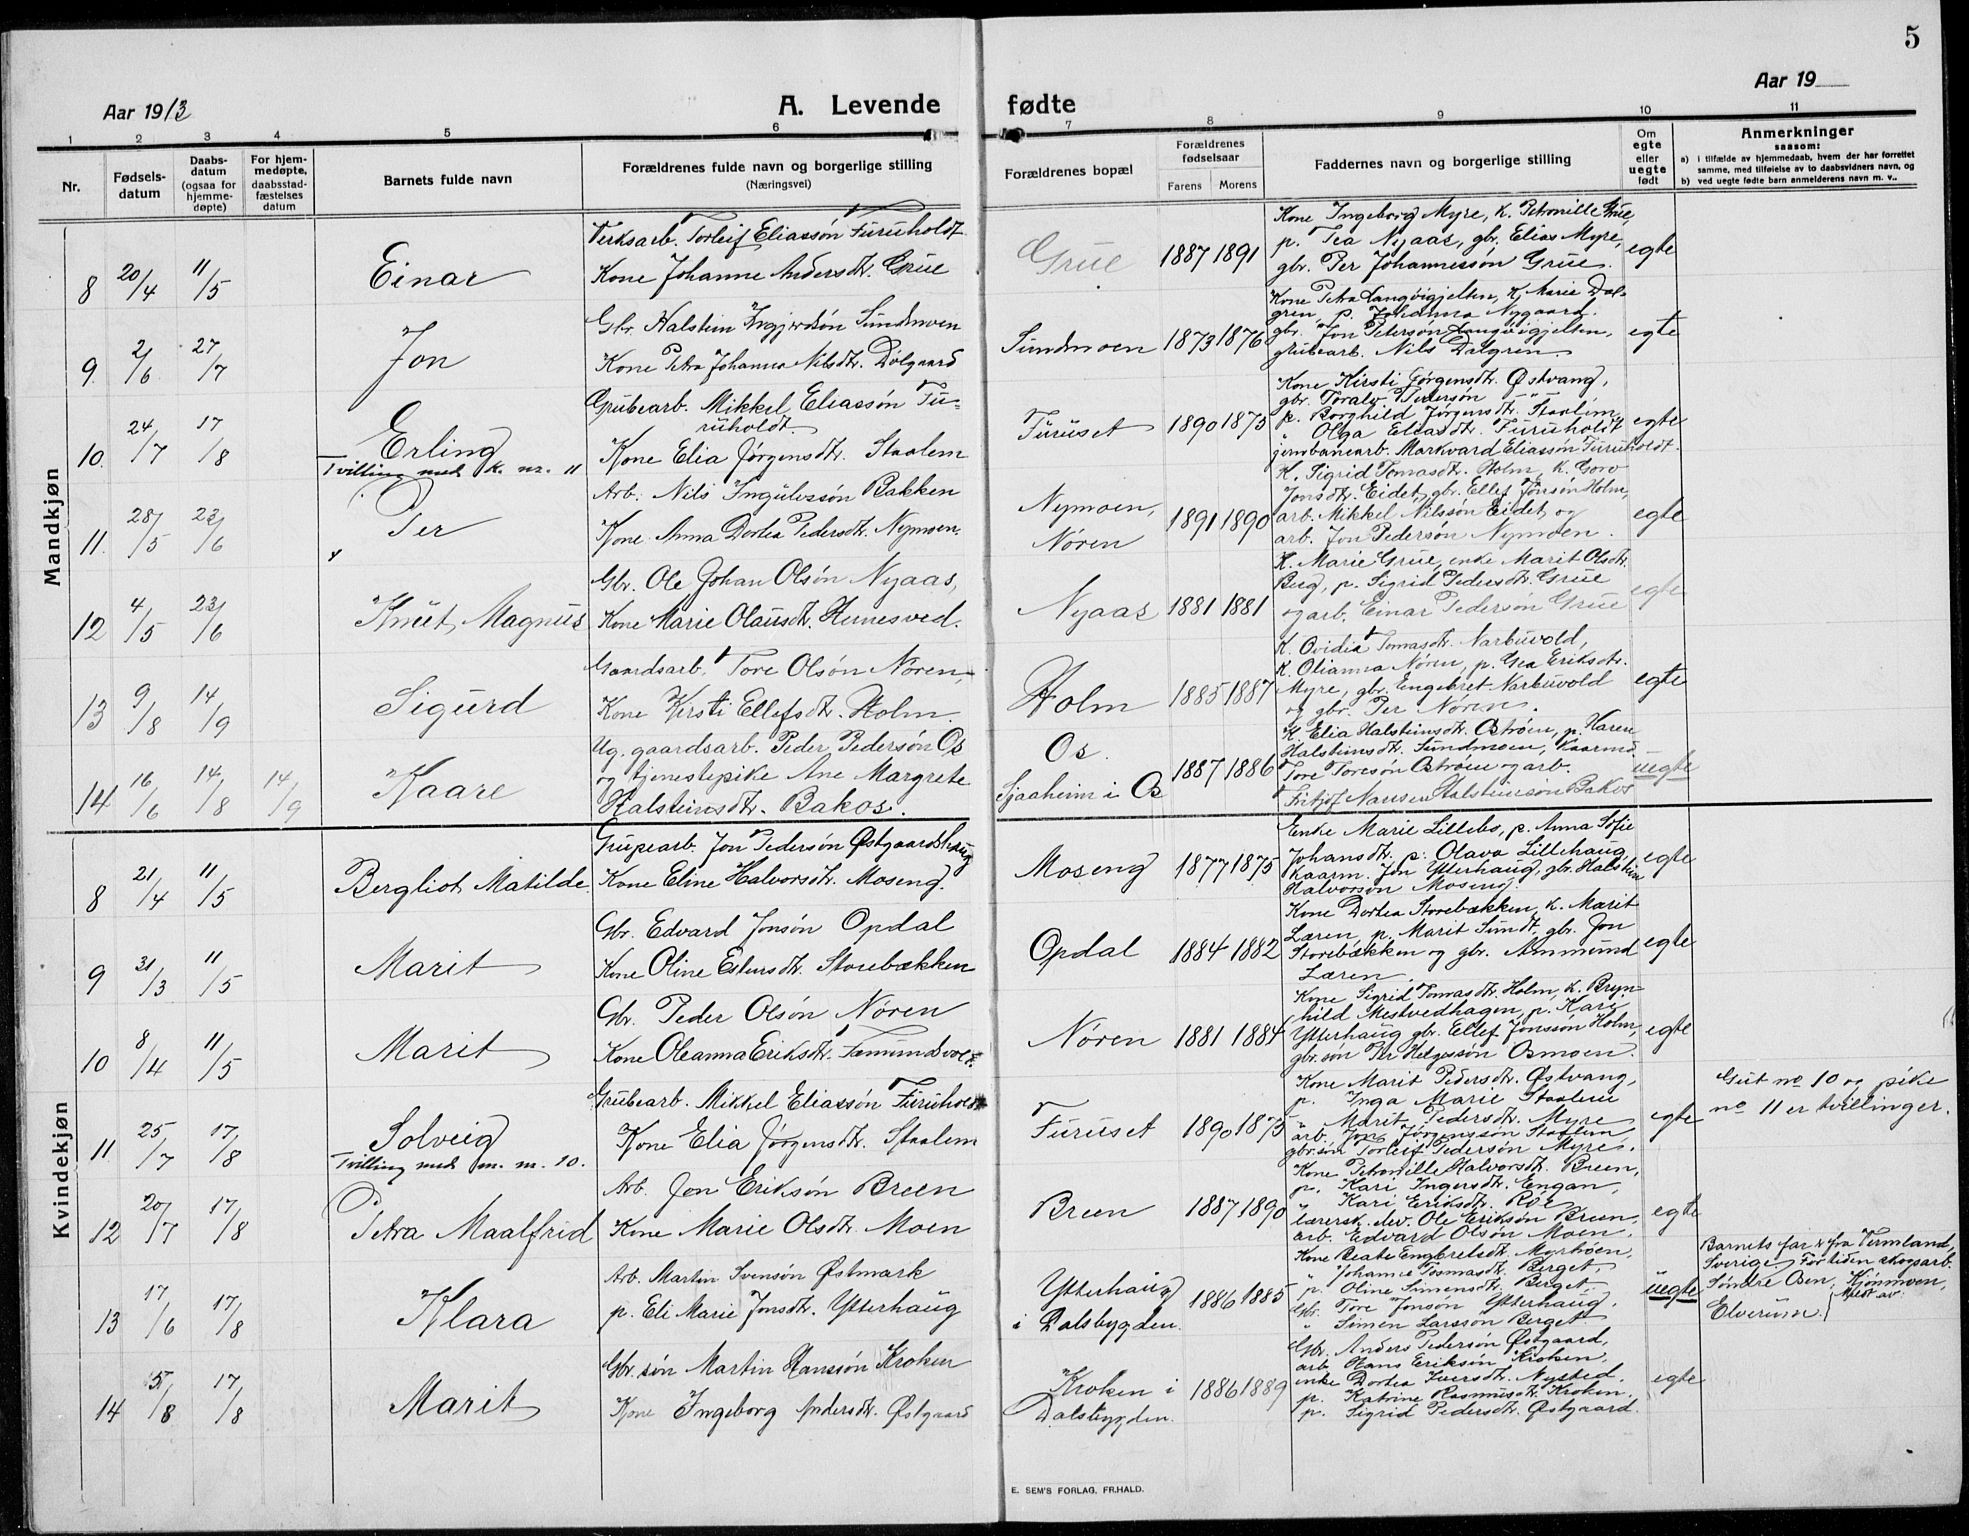 5
Aar 1913
A. Levende
fødte
Aar 19
1 2 3 4 5 6 7 8 9 10 11
Nr.
Fødsels-
datum
Daabs-
datum
(ogsaa for
hjemme-
døpte)
For hjem-
medøpte,
daabsstad-
fæstelses
datum
Barnets fulde navn
Forældrenes fulde navn og borgerlige stilling
(Næringsvei)
Forældrenes bopæl
Forældrenes
fødselsaar
Farens Morens
Faddernes navn og borgerlige stilling
Om
egte
eller
uegte
født
Anmerkninger
saasom:
a) i tilfælde av hjemmedaab, hvem der har forrettet
samme, med tilføielse av to daabsvidners navn, og
b) ved uegte fødte barn anmelderens navn m. v..
Mandkjøn
8 20/4 11/5 Einar
Verksarb. Torleif Eliassøn Furuholdt
Kone Johanne Andersdtr. Grue
Grue 1887 1891
Kone Ingeborg Myre, k. Petronille Grue,
p. Tea Nyaas, gbr. Elias Myre,
gbr. Per Johannessøn Grue.
egte
9. 2/6 27/7 Jon
Gbr. Halstein Ingjerdsøn Sundmoen
Kone Petra Johanna Nilsdtr. Dølgaard
Sundmoen 1873 1876
Kone Petra Langøigjelten, K. Marie Dal-
gren, p. Johanna Nygaard.
gbr. Jon Petersøn Langøigjelten,
grubearb. Nils Dalgren
egte
10. 24/7 17/8 Erling
Tvilling med k. nr. 11
Grubearb. Mikkel Eliassøn Fu-
ruholdt.
Kone Elia Jørgensdtr. Staalem
Furuset 1890 1875
Kone Kirsti Jørgensdtr. Østvang,
gbr. Toralv Pedersøn
p. Borghild Jørgensdtr. Staalem
" Olga Eliasdtr. Furuholdt
jernbanearb. Markvard Eliassøn Furuholdt.
egte
11. 28/5 22/6 Per
Arb. Nils Ingulvssøn Bakken
Kone Anna Dortea Pedersdtr. Nymoen.
Nymoen,
Nøren
1891 1890
K. Sigrid Tomasdtr. Holm, k. Goro
Jonsdtr. Eidet, gbr. Ellef Jonsøn Holm,
arb. Mikkel Nilssøn Eidet og
arb. Jon Pedersøn Nymoen.
egte
12 4/5 22/6 Knut Magnus
Gbr. Ole Johan Olsøn Nyaas,
Kone Marie Olausdtr. Hernesved.
Nyaas 1881 1881
K. Marie Grue, enke Marit Olsdtr.
Berg, p. Sigrid Pedersdtr. Grue
og arb. Einar Pedersøn Grue
egte
13 9/8 14/9 Sigurd
Gaardsarb. Tore Olsøn Nøren,
Kone Kirsti Ellefsdtr. Holm.
Holm 1885 1887
K. Ovidia Tomasdtr. Narbuvold,
K. Olianna Nøren, p. Gea Eriksdtr.
Myre, gbr. Engebret Narbuvold
og gbr. Per Nøren.
egte
14 16/6 14/8 14/9 Kaare
Ug. gaardsarb. Peder Pedersøn Os
og tjenestepike Ane Margrete
Halsteinsdtr. Bakos.
Os.
Sjaaheim i Os
1887 1886
K. Elia Halsteinsdtr. Østrøen, p. Karen
Halsteinsdtr. Sundmoen, Kaarmd.
Tore Toresøn Østrøen og arb.
Fritjof Nansen Halsteinsøn Bakos
uegte
Kvindekjøn
8 21/4 11/5 Bergliot Matilde
Grupearb. Jon Pedersøn Østgaardshaug
Kone Eline Halvorsdtr. Moseng.
Moseng 1877 1875
Enke Marie Lillebo, p. Anna Sofie
Johansdtr. p. Olava Lillehaug
Kaarm. Jon Ytterhaug, gbr. Halstein
Halvorsøn Moseng
egte
9 31/3 11/5 Marit
Gbr. Edvard Jonsøn Opdal
Kone Oline Estensdtr. Storebækken
Opdal 1884 1882
Kone Dortea Storebækken, k. Marit
Læren, p. Marit Sundt, gbr. Jon
Storebækken og gbr. Ammund
Læren.
egte
10 8/4 11/5 Marit
Gbr. Peder Olsøn Nøren
Kone Oleanna Eriksdtr. Fæmundsvold.
Nøren 1881 1884
Kone Sigrid Tomasdtr. Holm, k. Bryn-
hild Mestvedhagen, p. Kari
Ytterhaug gbr. Ellef Jonsson Holm,
gbr.søn Per Helgessøn Osmoen.
egte
11 25/7 17/8 Solveig
Tvilling med m. nr. 10.
Grubearb. Mikkel Eliassøn Furuholdt
Kone Elia Jørgensdtr. Staalem
Furuset 1890 1875
Kone Marit Pedersdtr. Østvang,
p. Inga Marie Staalem
" Marit Pedersdtr. Myre
arb. Jon Jørgenssøn Staalem
gbr.søn Torleif Pedersøn Myre.
egte
Gut no 10 og pike
no 11 er tvillinger.
12 20/7 17/8 Petra Maalfrid
Arb. Jon Eriksøn Breen
Kone Marie Olsdtr. Moen
Breen 1887 1890
Kone Petronille Halvorsdtr. Breen,
p. Kari Ingersdtr. Engan,
" Kari Eriksdtr. Roe
lærersk. elev. Ole Eriksøn Breen,
arb. Edvard Olsøn Moen.
egte
13 17/6 17/8 Klara
Arb. Martin Svensøn Østmark
p. Eli Marie Jonsdtr. Ytterhaug
Ytterhaug
i Dalsbygden.
1886 1885
Kone Beate Engbretsdtr. Myrhøen,
" Johanne Tosmasdtr. Berget,
p. Oline Simensdtr. Berget
Gbr. Tore Jonsøn Ytterhaug,
" Simen Larssøn Berget
uegte
Barnets far er fra Vermland,
Sverige. For tiden skogsarb.
Søndre Osen, Kjønmoen,
Elverum
14 5/8 17/8 Marit
Gbr. søn Martin Hanssøn Kroken
Kone Ingeborg Andersdtr. Østgaard
Kroken i
Dalsbygden.
1886 1889
Gbr. Anders Pedersøn Østgaard,
arb. Hans Eriksøn Kroken,
enke Dortea Iversdtr. Nysted,
p. Katrine Rasmusdtr. Kroken.
p. Sigrid Pedersdtr. Østgaard.
egte
E. SEM'S FORLAG, FR.HALD.